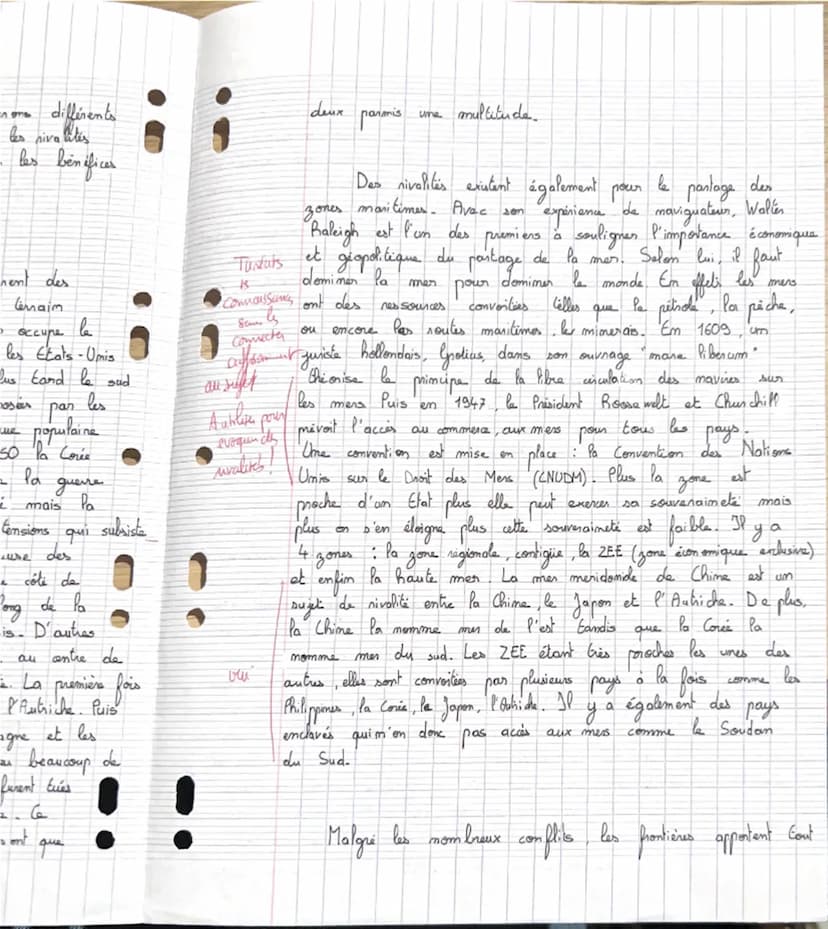 ons différents
les rivalités
les bénéfices
ment des
terrain
occupe la
les États-Unis
plus tard le sud
posées par les
que populaire
50 la Corée
la guerre
mais la
tensions qui subsiste
cause des
côté de
long de la
is. D'autres
au centre de
La première fois
l'Autriche. Puis
agne et les
beaucoup de
furent tués
Ce
ont que
deux parmis une multitude.
Des rivalités existent également pour le partage des
zones maritimes. Avec son expérience de naviguateur, Walter
Raleigh est l'un des premiers à souligner l'importance économique
et géopolitique du partage de la mer. Selon lui, il faut
dominer la mer pour dominer le monde. En effet les mers
ont des ressources convoitées telles que le pétrole, la pêche,
ou encore les routes maritimes, les minerais. En 1609, un
juriste hollandais, Grotius, dans son ouvrage "mare liberum"
théorise le principe de la libre circulation des navires sur
les mers Puis en 1947, le Président Roosewelt et Churchill
prévoit l'accès au commerce, aux mers pour tous les pays.
Une convention est mise en place : la Convention des Nations
Unis sur le Droit des Mers (CNUDM). Plus la zone est
proche d'un Etat plus elle peut exercer sa souveraineté mais
plus on s'en éloigne plus cette souveraineté est faible. Il y a
4 zones : la zone régionale, contigüe, la ZEE (zone économique exclusive)
et enfin la haute mer. La mer meridionale de Chine est un
sujet de rivalité entre la Chine, le Japon et l'Autriche. De plus,
la Chine la nomme mer de l'est tandis que la Corée la
nomme mer du sud. Les ZEE étant très proches les unes des
autres, elles sont convoitées par plusieurs pays à la fois comme les
Philippines, la Corée, le Japon, l'Autriche. Il y a également des pays
enclavés qui n'on donc pas accès aux mers comme le Soudan
du Sud.
Malgré les nombreux conflits, les frontières apportent tout
Tu
connaissances
sans les
connecter
suffisamment
au sujet
A utiliser pour
evoquer des
rivalités !
oui